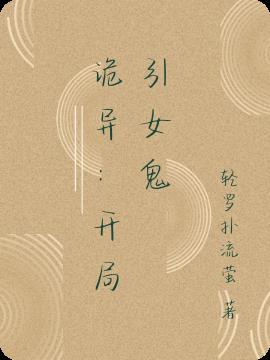 诡异：开局
引女鬼
轻罗扑流萤 著